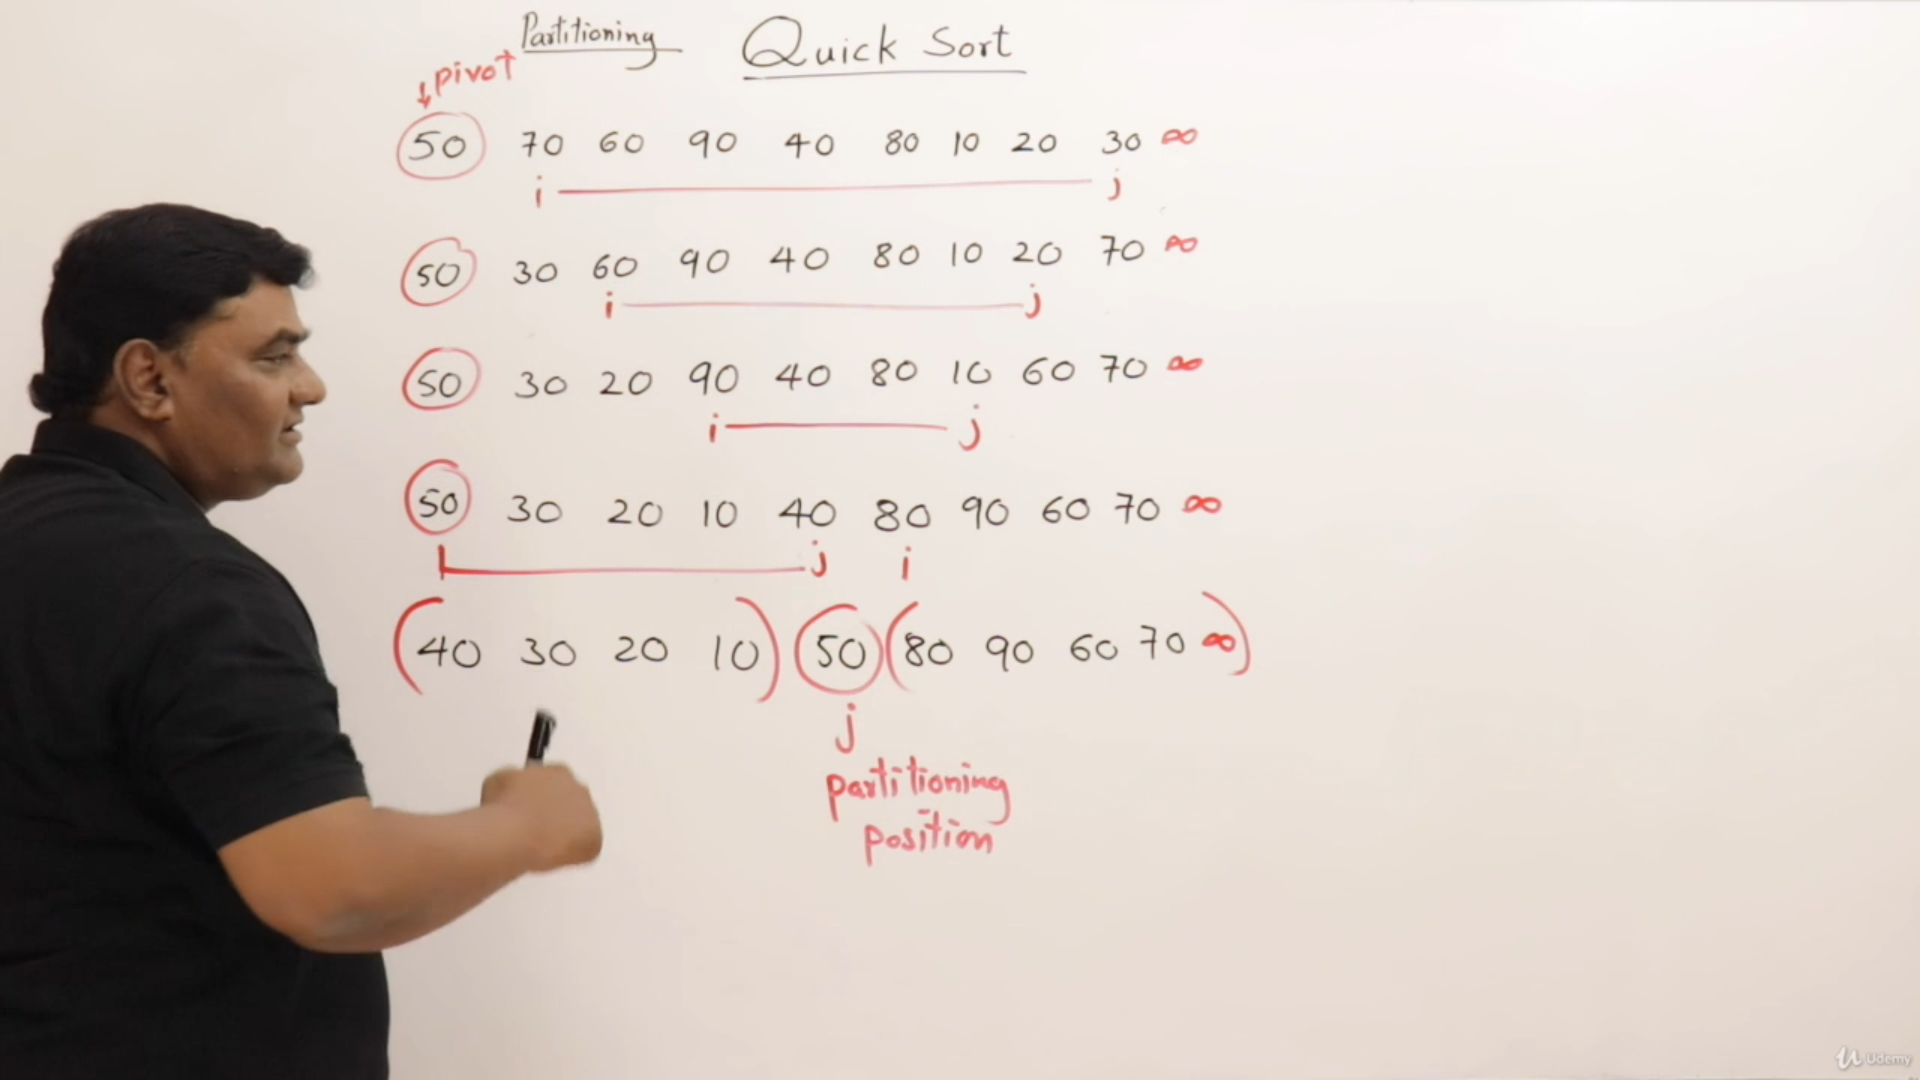 Partitioning Quick Sort
↓pivot
50 70 60 90 40 80 10 20 30 ∞
i j
50 30 60 90 40 80 10 20 70 ∞
i j
50 30 20 90 40 80 10 60 70 ∞
i j
50 30 20 10 40 80 90 60 70 ∞
j i
(40 30 20 10) 50 (80 90 60 70 ∞)
j
partitioning
position
Udemy